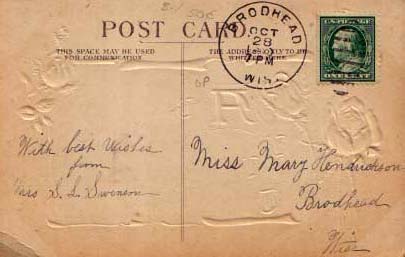 POST CARD
THIS SPACE MAY BE USED
FOR COMMUNICATION
THE ADDRESS ONLY TO BE
WRITTEN HERE
BRODHEAD
OCT
28
7 PM
WIS.
U.S. POSTAGE
ONE CENT
With best Wishes
from
Mrs S. L. Swenson
Miss Mary Hendrickson
Brodhead
Wis